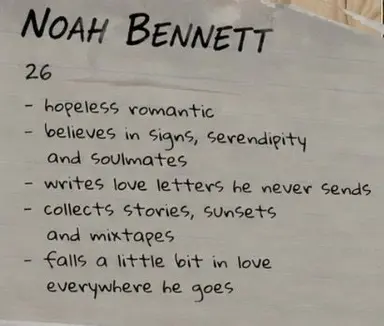 NOAH BENNETT
26
- hopeless romantic
- believes in signs, serendipity
and soulmates
- writes love letters he never sends
- collects stories, sunsets
and mixtapes
- falls a little bit in love
everywhere he goes